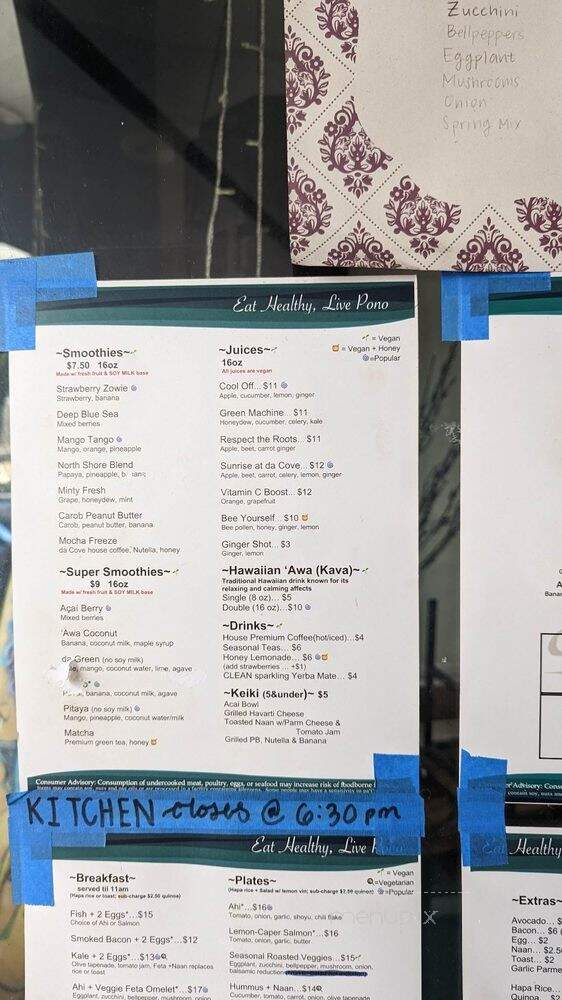 Zucchini
Bellpeppers
Eggplant
Mushrooms
Onion
Spring Mix
Eat Healthy, Live Pono
= Vegan
= Vegan + Honey
=Popular
~Smoothies~
$7.50 16oz
Made w/ fresh fruit & SOY MILK base
Strawberry Zowie
Strawberry, banana
Deep Blue Sea
Mixed berries
Mango Tango
Mango, orange, pineapple
North Shore Blend
Papaya, pineapple,
Minty Fresh
Grape, honeydew, mint
Carob Peanut Butter
Carob, peanut butter, banana
Mocha Freeze
da Cove house coffee, Nutella, honey
~Super Smoothies~
$9 16oz
Made w/ fresh fruit & SOY MILK base
Açai Berry
Mixed berries
'Awa Coconut
Banana, coconut milk, maple syrup
da Green (no soy milk)
mango, coconut water, lime, agave
banana, coconut milk, agave
Pitaya (no soy milk)
Mango, pineapple, coconut water/milk
Matcha
Premium green tea, honey
~Juices~
16oz
All juices are vegan
Cool Off... $11
Apple, cucumber, lemon, ginger
Green Machine... $11
Honeydew, cucumber, celery, kale
Respect the Roots... $11
Apple, beet, carrot ginger
Sunrise at da Cove... $12
Apple, beet, carrot, celery, lemon, ginger
Vitamin C Boost... $12
Orange, grapefruit
Bee Yourself... $10
Bee pollen, honey, ginger, lemon
Ginger Shot... $3
Ginger, lemon
~Hawaiian 'Awa (Kava)~
Traditional Hawaiian drink known for its
relaxing and calming affects
Single (8 oz)... $5
Double (16 oz)...$10
~Drinks~
House Premium Coffee(hot/iced)...$4
Seasonal Teas... $6
Honey Lemonade... $6
(add strawberries ... +$1)
CLEAN sparkling Yerba Mate... $4
~Keiki (5&under)~ $5
Acai Bowl
Grilled Havarti Cheese
Toasted Naan w/Parm Cheese &
Tomato Jam
Grilled PB, Nutella & Banana
Consumer Advisory: Consumption of undercooked meat, poultry, eggs, or seafood may increase risk of foodborne
KITCHEN closes @ 6:30 pm
Eat Healthy, Live
= Vegan
=Vegetarian
=Popular
~Breakfast~
served til 11am
(Hapa rice or toast; sub-charge $2.50 quinoa)
Fish + 2 Eggs*...$15
Choice of Ahi or Salmon
Smoked Bacon + 2 Eggs...$12
Kale + 2 Eggs*...$13
Olive tapenade, tomato jam, Feta +Naan replaces
rice or toast
Ahi + Veggie Feta Omelet*...$17
Eggplant, zucchini, bellpepper, mushroom, onion,
~Plates~
(Hapa rice + Salad w/ lemon vin; sub-charge $2.50 quinoa)
Ahi*...$16
Tomato, onion, garlic, shoyu, chili flake
Lemon-Caper Salmon*...$16
Tomato, onion, garlic, butter
Seasonal Roasted Veggies...$15
Eggplant, zucchini, bellpepper, mushroom, onion,
balsamic reduction
Hummus + Naan...$14
Cucumber, tomato, carrot, onion, olive tapenade
Healthy, Live
~Extras~
Avocado...
Bacon... $6
Egg... $2
Naan... $2.50
Toast... $2
Garlic Parme
Hapa Rice...
Quinoa... $2